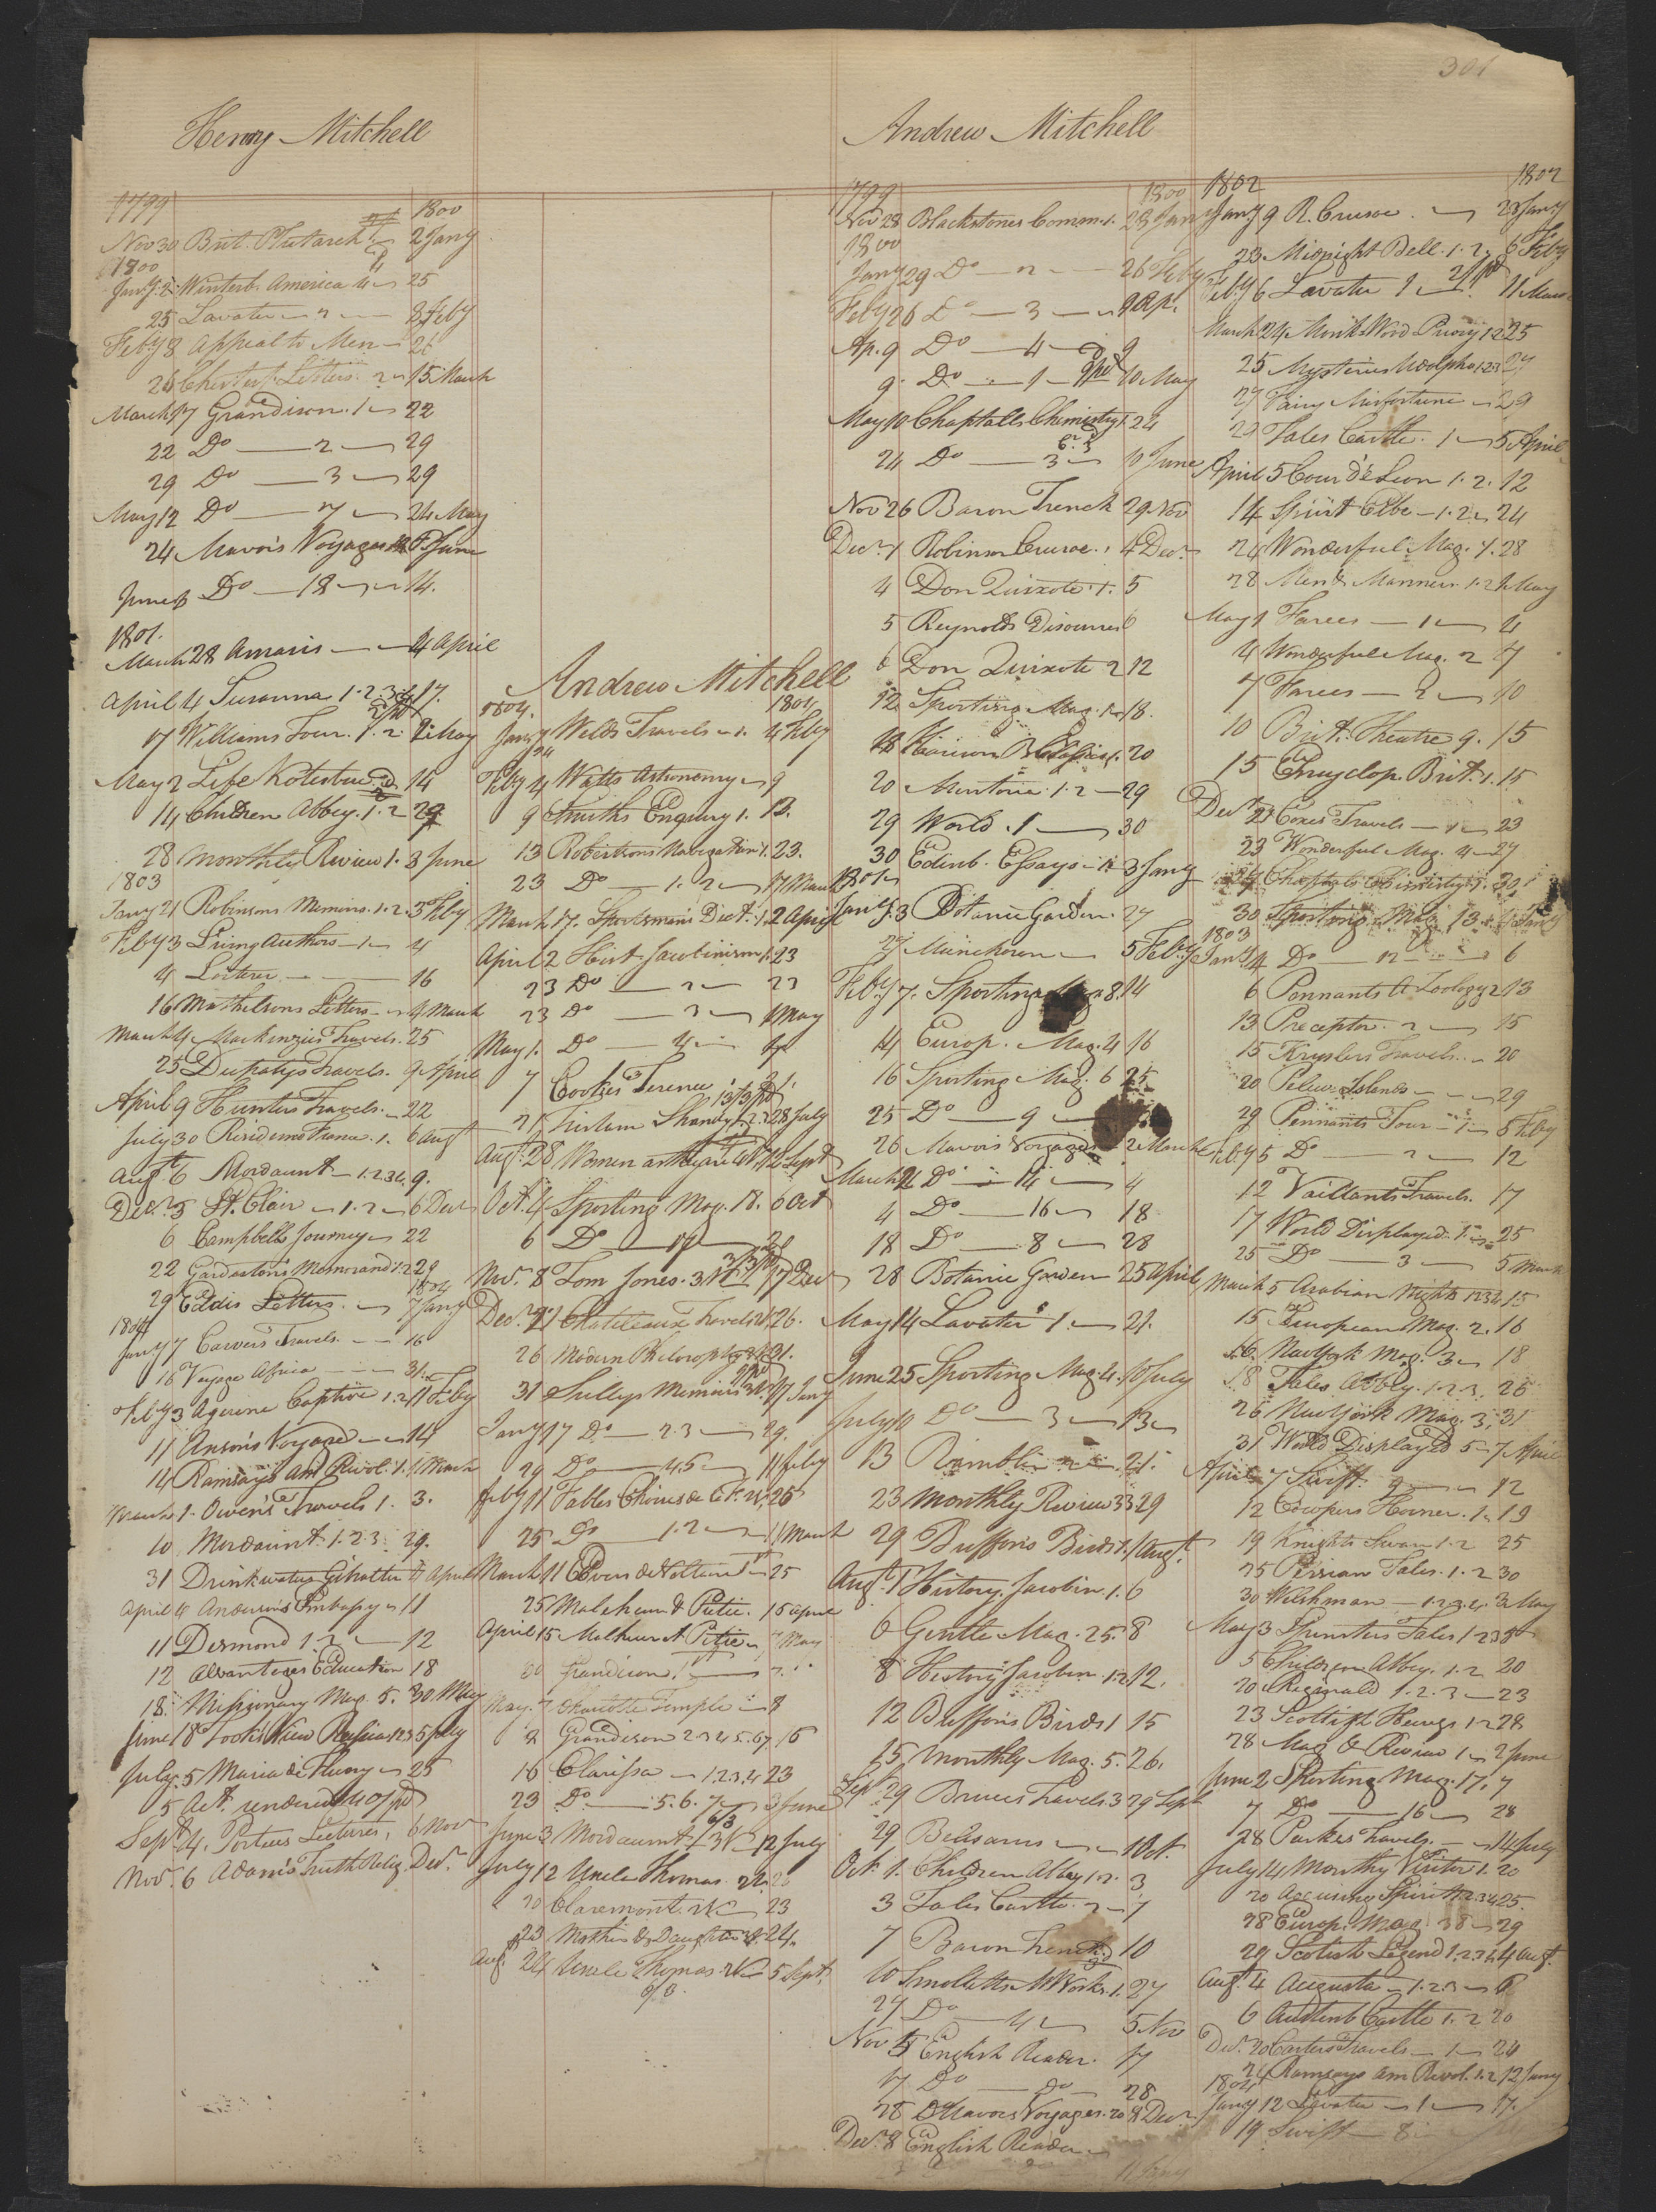 301
Henry Mitchell
1799 1800
Nov 30 Brit. Plutarch 2 Jany
1800
Jany 2 Winterb. America 4 25
25 Lavater 2 8 Feby
Feby 8 Appeal to Men 26
26 Chesterf. Letters 2 15 March
March 17 Grandison. 1 22
22 Do 2 29
29 Do 3 29
May 12 Do 7 24 May
24 Mavor's Voyages June
June Do 18 14.
1801.
March 28 Amaris 4 April
April 4 Susanna 1.2.3.4 17.
17 Williams Tour. 1.2. 2 May
May 2 Life Kotzebue 14
14 Children Abbey. 1.2 29
28 Monthly Review 1. 3 June
1803
Jany 21 Robinsons Memoirs. 1.2. 3 Feby
Feby 3 Living Authors 1 4
4 Loiterer 16
16 Mathelsons Letters 4 March
March 4 Mackenzies Travels. 25
25 Dupatys Travels. 9 April
April 9 Hunters Travels. 22
July 30 Residence France. 1. 6 Augt
Augt 6 Mordaunt 1.2.3.4. 9.
Decr 3 St. Clair 1.2 6 Decr
6 Campbells Journey 22
22 Gardenston's Memorand 1.2 29
1804
29 Eddis Letters 7 Jany
1804
Jany 7 Carvers Travels. 16
16 Voyage Africa 31.
Feby 3 Agerine Captive 1.2 11 Feby
11 Anson's Voyage 14
14 Ramsays Am Revol. 1. 1 March
March 1. Owen's Travels 1. 3.
10 Mordaunt. 1.2.3. 29.
31 Drinkwaters Gibralter April
April 4 Anderson's Embassy 11
11 Desmond 1.2 12
12 Advantages Education 18
18. Missionary Mag. 5. 30 May
June 18 Tooke's View Russia 1.2.3 5 July
July 5 Maria de Fluny 25
5 Act. rendered 40/ pd
Sept 4. Porteus Lectures, 6 Nov
Nov. 6 Adams Truth Relig. Decr.
Andrew Mitchell
1804. 1804
Jany 24 Welds Travels 1. 4 Feby
Feby 4 Watts Astronomy 9
9 Smiths Enquiry 1. 13.
13 Robertsons Navigation 1. 23.
23 Do 1.2 17 March
March 17. Sportsman's Dict. 1. 2 April
April 2 Hist. Jacobinism 1. 23
23 Do 2 23
23 Do 3 1 May
May 1. Do 4 7
7 Cooke's Terence 21.
21 Tristram Shandy 1.2.3 28 July
Aug. 28 Women as they are 12 Sept
Oct. 4 Sporting Mag. 18. 6 Oct
6 Do 19
Nov. 8 Tom Jones. 3 V 17 Decr
Dec. 21 Chatileaux Travels 26.
26 Modern Philosophy 31.
31 Sullys Memoirs 17 Jany
Jany 17 Do 2.3 29.
29 Do 4.5 11 Feby
Feby 11 Fables Choisis de 25
25 Do 1.2 11 March
March 11 25
25 Malcham & Petie. 15 April
April 15. Malhum & Petie 7 May
30 Grandison. 1
May. 7 Charlotte Temple 8
8 Grandison 2.3.4.5.6.7. 16
16 Clarissa 1.2.3.4 23
23 Do 5.6.7 3 June
June 3 Mordaunt 3 V 12 July
July 12 Uncle Thomas. 2V. 20
20 Claremont. 2V 23
23 Mother & Daughter 24.
Aug. 24 Uncle Thomas. 2V 5 Sept.
6/6.
Andrew Mitchell
1799 1800
Nov 28 Blackstones Comm. 1. 28 Jany
1800
Jany 29 Do 2 26 Feby
Feby 26 Do 3 9 Ap.
Ap. 9 Do 4 9
9. Do 1 10 May
May 10 Chaptalls Chemistry 1 24
24 Do 3 10 June
Nov 26 Baron Trenck 29 Nov
Decr. 1 Robinson Crusoe. 1 4 Decr
4 Don Quixote 1. 5
5 Reynolds Discourses 6
6 Don Quixote 2 12
12 Sporting Mag. 1 18.
18 20
20 Mentoria 1.2 29
29 World. 1 30
30 Edinb. Essays 3 Jany
1801
Jany. 3 Botanic Garden. 27
27 Munchasen 5 Feby
Feby 7. Sporting Mag 8. 14
14 Europ. Mag. 4 16
16 Sporting Mag. 6 25
25 Do 9
26 Mavors Voyages 2 March
March 2 Do 14 4
4 Do 16 18
18 Do 8 28
28 Botanic Garden 25 April
May 14 Lavater 1. 21.
June 25 Sporting Mag. 4. 10 July
July 10 Do 3 13
13 Rambler 21.
23 Monthly Review 33. 29
29 Buffons Birds 1. 1 Augt.
Augt. 1 History Jacobin. 1. 6
6 Gentle Mag. 25. 8
8 History Jacobin. 1.2 12.
12 Buffons Birds 1 15
15 Monthly Mag. 5. 26.
Sept 29 Bruces Travels 3 29 Sept
29 Belisarius 1 Oct.
Oct. 1. Children Abbey 1.2. 3
3 Tales Castle. 2 7
7 Baron Trenck 10
10 Smolletts Works. 1. 27
27 Do 4 5 Nov
Nov 5 English Reader. 17
17 Do do 28
28 Mavors Voyages. 20 8 Decr
Dec. 8 English Reader
11 Jany
1802 1802
Jany 9 R. Crusoe. 23 Jany
23 Midnight Bell. 1.2. 6 Feby
Feby 6 Lavater 1 11 March
March 24 Monks Wood Priory 1.2 25
25 Mysteries Udolpho 1.2.3 27
27 Fairy Misfortune 29
29 Tales Castle. 1 5 April
April 5 Cour de Leon 1.2. 12
14 Spirit Elbe 1.2 24
24 Wonderful Mag. 1. 28
28 Men & Manners. 1.2 1 May
May 1 Farces 1 4
4 Wonderful Mag. 2 7
7 Farces 2 10
10 Brit. Theatre 9. 15
15 Encyclop. Brit. 1. 15
Decr 21 Coxes Travels 1 23
23 Wonderful Mag. 4 27
27 Chaptals Chimistry 1. 30
30 Sporting Mag 13 4 Jany
1803
Jany 4 Do 12 6
6 Pennants A Zoology 2 13
13 Preceptor. 2 15
15 Kryslers Travels. 20
20 Pelew Islands 29
29 Pennants Tour 1 5 Feby
Feby 5 Do 2 12
12 Vaillants Travels. 17
17 World Displayed. 1. 25
25 Do 3 5 March
March 5 Arabian Nights 1.2.3.4 15
15 European Mag. 2. 16
16. New York Mag. 3 18
18 Tales Abbey. 1.2.3. 26
26 New York Mag. 3. 31
31 World Displayed 5 7 April
April 7 Swift. 9 12
12 Cowpers Homer. 1. 19
19 Knights Swan 1.2 25
25 Persian Tales. 1.2 30
30 Welshman 1.2.3.4. 3 May
May 3 Spinsters Tales 1.2.3
5 Children Abbey. 1.2 20
20 Reginald 1.2.3 23
23 Scottish Heungs 1.2 28
28 Mag & Review 1 2 June
June 2 Sporting Mag. 17. 7
7 Do 16 28
28 Parkes Travels. 14 July
July 14 Monthly Visitor 1. 20
20 Accusing Spirit 1.2.3.4 25.
28 Europ. Mag. 38 29
29 Scotish Legend 1.2.3.4 4 Augt.
Augt. 4 Augusta 1.2.3 6
6 Austenb Castle 1.2 20
Dec. 20 Carters Travels 1 24
24 Ramsays Am Revol. 1.2 12 Jany
1804
Jany 12 Lavater 1 17.
19 Swift 8